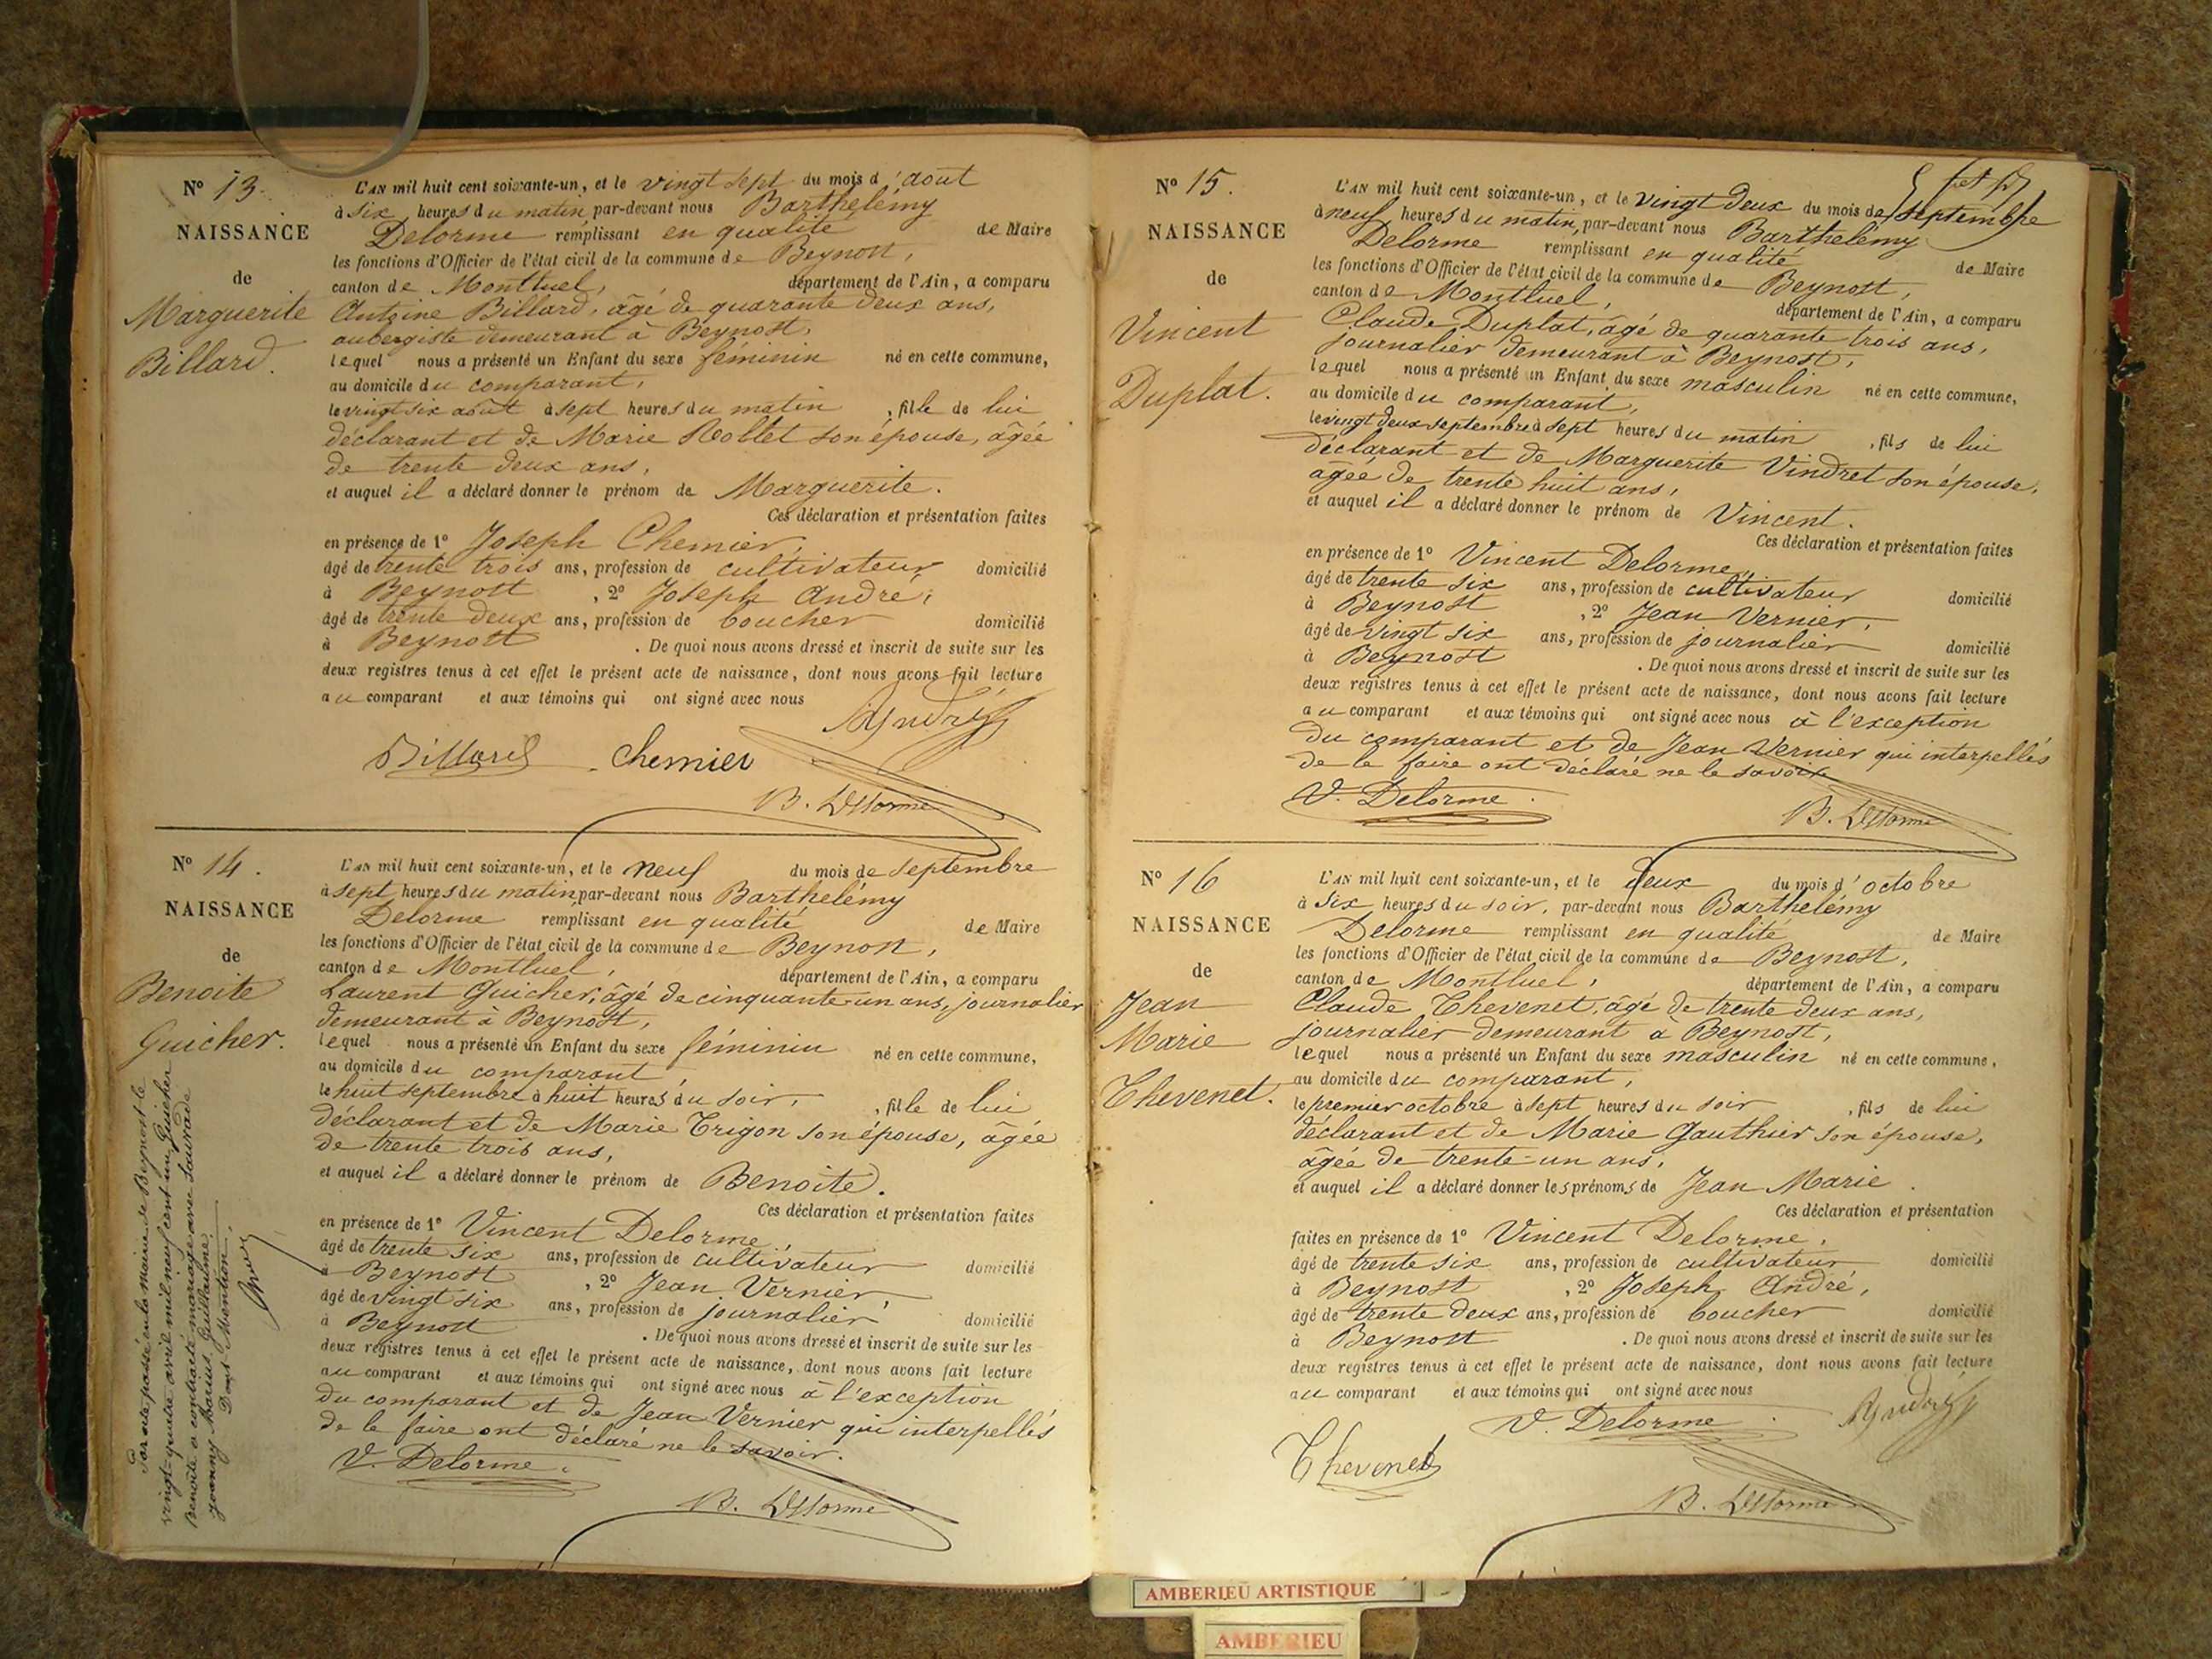 N° 13.
NAISSANCE
de
Marguerite
Billard.
L'AN mil huit cent soixante-un, et le vingt sept du mois d'août
à six heures du matin par-devant nous Barthelémy
Delorme remplissant en qualité de Maire
les fonctions d'Officier de l'état civil de la commune de Beynost,
canton de Montluel, département de l'Ain, a comparu
Antoine Billard, âgé de quarante deux ans,
aubergiste demeurant à Beynost,
lequel nous a présenté un Enfant du sexe féminin né en cette commune,
au domicile du comparant,
le vingt six août à sept heures du matin, fille de lui
déclarant et de Marie Rollet son épouse, âgée
de trente deux ans,
et auquel il a déclaré donner le prénom de Marguerite.
Ces déclaration et présentation faites
en présence de 1° Joseph Chemier,
âgé de trente trois ans, profession de cultivateur domicilié
à Beynost, 2° Joseph André,
âgé de trente deux ans, profession de boucher domicilié
à Beynost. De quoi nous avons dressé et inscrit de suite sur les
deux registres tenus à cet effet le présent acte de naissance, dont nous avons fait lecture
au comparant et aux témoins qui ont signé avec nous
André
Billard Chemier
B. Delorme
N° 14.
NAISSANCE
de
Benoite
Guicher.
L'AN mil huit cent soixante-un, et le neuf du mois de septembre
à sept heures du matin, par-devant nous Barthelémy
Delorme remplissant en qualité de Maire
les fonctions d'Officier de l'état civil de la commune de Beynost,
canton de Montluel, département de l'Ain, a comparu
Laurent Guicher, âgé de cinquante-un ans, journalier
demeurant à Beynost,
lequel nous a présenté un Enfant du sexe féminin né en cette commune,
au domicile du comparant,
le huit septembre à huit heures du soir, fille de lui
déclarant et de Marie Trigon son épouse, âgée
de trente trois ans,
et auquel il a déclaré donner le prénom de Benoite.
Ces déclaration et présentation faites
en présence de 1° Vincent Delorme,
âgé de trente six ans, profession de cultivateur domicilié
à Beynost, 2° Jean Vernier,
âgé de vingt six ans, profession de journalier domicilié
à Beynost. De quoi nous avons dressé et inscrit de suite sur les
deux registres tenus à cet effet le présent acte de naissance, dont nous avons fait lecture
au comparant et aux témoins qui ont signé avec nous à l'exception
du comparant et de Jean Vernier qui interpellés
de le faire ont déclaré ne le savoir.
V. Delorme.
B. Delorme
Par acte passé en la mairie de Beynost le
vingt-quatre avril mil neuf cent un, Guicher
Benoite a contracté mariage avec
Joanny Marius Guillaume.
Dont Mention.
N° 15.
NAISSANCE
de
Vincent
Duplat.
L'AN mil huit cent soixante-un, et le vingt deux du mois de septembre
à neuf heures du matin, par-devant nous Barthelémy
Delorme remplissant en qualité de Maire
les fonctions d'Officier de l'état civil de la commune de Beynost,
canton de Montluel, département de l'Ain, a comparu
Claude Duplat, âgé de quarante trois ans,
journalier demeurant à Beynost,
lequel nous a présenté un Enfant du sexe masculin né en cette commune,
au domicile du comparant,
le vingt deux septembre à sept heures du matin, fils de lui
déclarant et de Marguerite Vindret son épouse,
âgée de trente huit ans,
et auquel il a déclaré donner le prénom de Vincent.
Ces déclaration et présentation faites
en présence de 1° Vincent Delorme,
âgé de trente six ans, profession de cultivateur domicilié
à Beynost, 2° Jean Vernier,
âgé de vingt six ans, profession de journalier domicilié
à Beynost. De quoi nous avons dressé et inscrit de suite sur les
deux registres tenus à cet effet le présent acte de naissance, dont nous avons fait lecture
au comparant et aux témoins qui ont signé avec nous à l'exception
du comparant et de Jean Vernier qui interpellés
de le faire ont déclaré ne le savoir
V. Delorme.
B. Delorme
N° 16
NAISSANCE
de
Jean
Marie
Thevenet.
L'AN mil huit cent soixante-un, et le deux du mois d'octobre
à six heures du soir, par-devant nous Barthelémy
Delorme remplissant en qualité de Maire
les fonctions d'Officier de l'état civil de la commune de Beynost,
canton de Montluel, département de l'Ain, a comparu
Claude Thevenet, âgé de trente deux ans,
journalier demeurant à Beynost,
lequel nous a présenté un Enfant du sexe masculin né en cette commune,
au domicile du comparant,
le premier octobre à sept heures du soir, fils de lui
déclarant et de Marie Gauthier son épouse,
âgée de trente-un ans,
et auquel il a déclaré donner les prénoms de Jean Marie.
Ces déclaration et présentation
faites en présence de 1° Vincent Delorme,
âgé de trente six ans, profession de cultivateur domicilié
à Beynost, 2° Joseph André,
âgé de trente deux ans, profession de boucher domicilié
à Beynost. De quoi nous avons dressé et inscrit de suite sur les
deux registres tenus à cet effet le présent acte de naissance, dont nous avons fait lecture
au comparant et aux témoins qui ont signé avec nous
V. Delorme. André
Thevenet
B. Delorme
AMBERIEU ARTISTIQUE
AMBERIEU